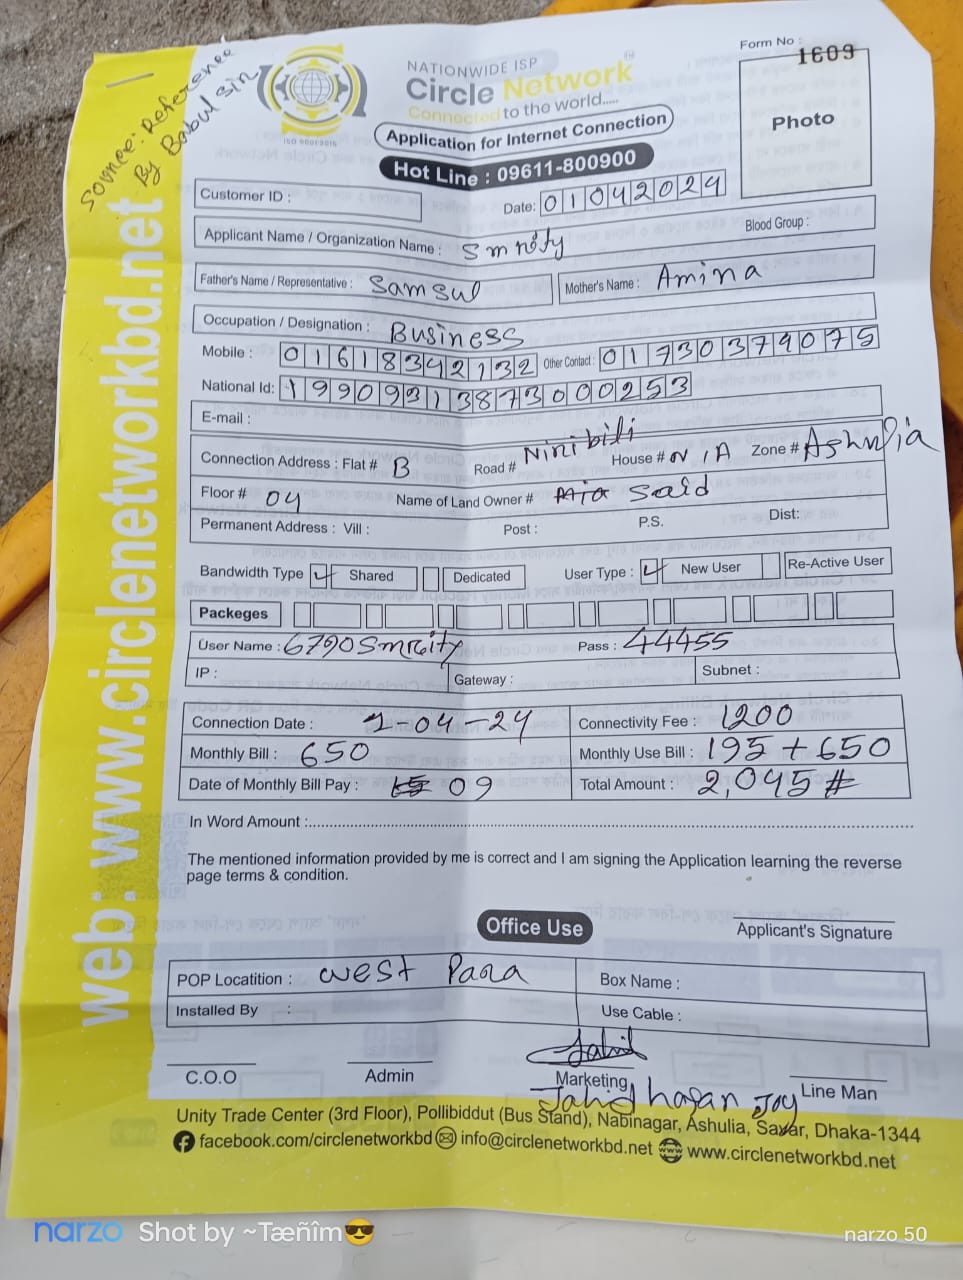 Sovnce: Reference
By Babul sir
NATIONWIDE ISP
Circle Network
Connected to the world.....
ISO 9001:2015
Application for Internet Connection
Hot Line : 09611-800900
Form No :
1609
Photo
Customer ID :
Date: 01042024
Applicant Name / Organization Name : Smrity
Blood Group :
Father's Name / Representative : Samsul
Mother's Name : Amina
Occupation / Designation : Business
Mobile : 01618342132 Other Contact : 01730379075
National Id: 19909313873000253
E-mail :
Connection Address : Flat # B Road # Niribili House # N/A Zone # Ashulia
Floor # 04 Name of Land Owner # Mia Said
Permanent Address : Vill : Post : P.S. Dist:
Bandwidth Type Shared Dedicated User Type : New User Re-Active User
Packeges
User Name : 6790Smrity Pass : 44455
IP : Gateway : Subnet :
Connection Date : 1-04-24 Connectivity Fee : 1200
Monthly Bill : 650 Monthly Use Bill : 195 + 650
Date of Monthly Bill Pay : 09 Total Amount : 2,045#
In Word Amount :
The mentioned information provided by me is correct and I am signing the Application learning the reverse
page terms & condition.
Office Use
Applicant's Signature
POP Locatition : West Para Box Name :
Installed By : Use Cable :
Jahid
C.O.O Admin Marketing Line Man
Jahid hasan Joy
Unity Trade Center (3rd Floor), Pollibiddut (Bus Stand), Nabinagar, Ashulia, Savar, Dhaka-1344
facebook.com/circlenetworkbd info@circlenetworkbd.net www.circlenetworkbd.net
web: www.circlenetworkbd.net
narzo Shot by ~Tæñîm😎
narzo 50